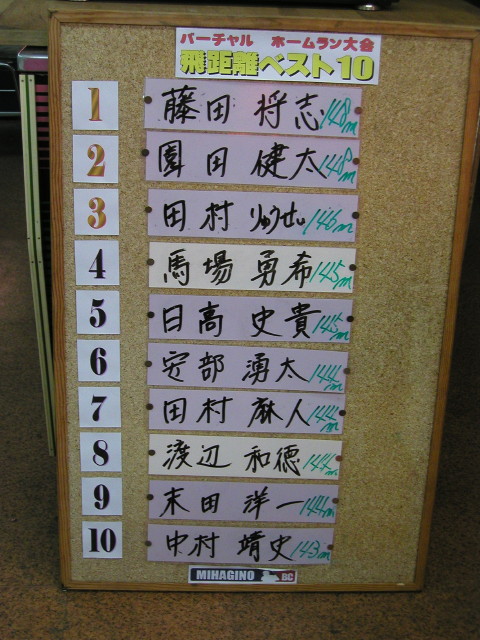 バーチャル ホームラン大会
飛距離ベスト10
1 藤田 将志 148m
2 園田 健太 148m
3 田村 りゅうせい 146m
4 馬場 勇希 145m
5 日高 史貴 145m
6 安部 湧太 144m
7 田村 麻人 144m
8 渡辺 和徳 144m
9 末田 洋一 144m
10 中村 靖史 143m
MIHAGINO BC